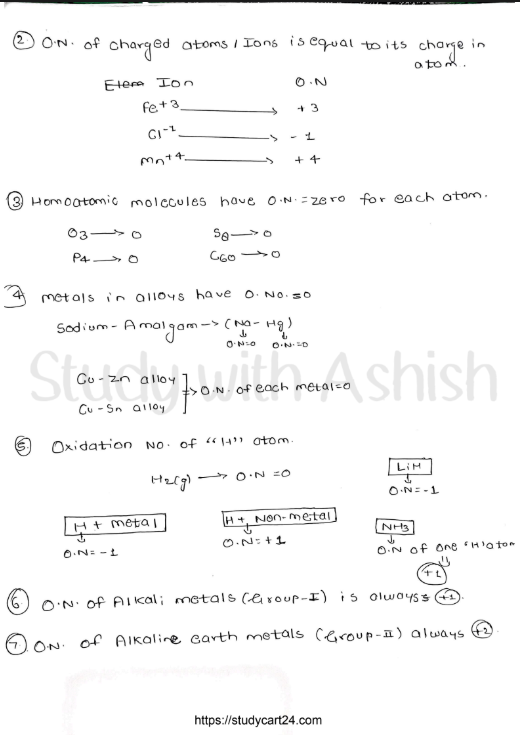 ② O.N. of charged atoms / Ions is equal to its charge in
atom.
Elem Ion O.N
Fe+3 → +3
Cl-1 → - 1
Mn+4 → + 4
③ Homoatomic molecules have O.N. = zero for each atom.
O3 → 0 S8 → 0
P4 → 0 C60 → 0
④ metals in alloys have O. No. = 0
Sodium - Amalgam → (Na - Hg)
↓ ↓
O.N=0 O.N.=0
Cu - Zn alloy
⇒ O.N. of each metal=0
Cu - Sn alloy
Study with Ashish
⑤ Oxidation No. of "H" atom.
H2(g) → O.N =0
LiH
↓
O.N=-1
H + metal
↓
O.N= -1
H + Non-metal
↓
O.N= +1
NH3
↓
O.N of one 'H' atom
⇓
+1
⑥ O.N. of Alkali metals (Group-I) is always +1.
⑦ O.N. of Alkaline earth metals (Group-II) always +2.
https://studycart24.com